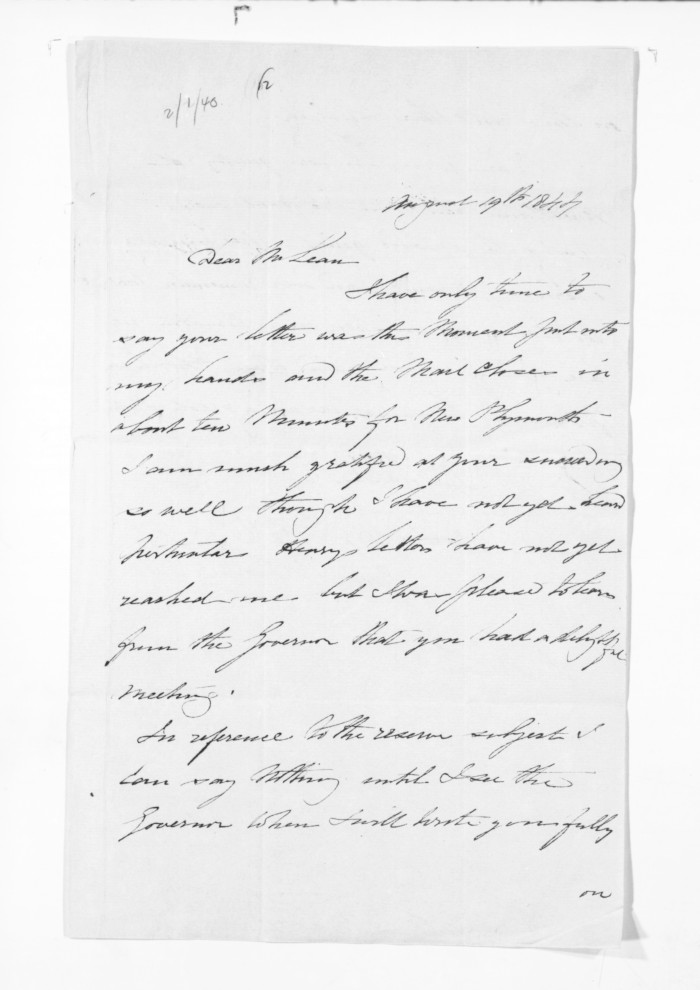 2/1/48
August 19th 1844
Dear McLean
I have only time to
say your letter was this Moment put into
my hands and the Mail Closes in
about ten Minutes for New Plymouth
I am much gratified at your succeeding
so well though I have not yet heard
Henrys letters have not yet
reached me but I was please to learn
from the Governor that you had a delightful
meeting.
In reference to the reserve subject I
can say Nothing until I see the
Governor when I will write you fully
on